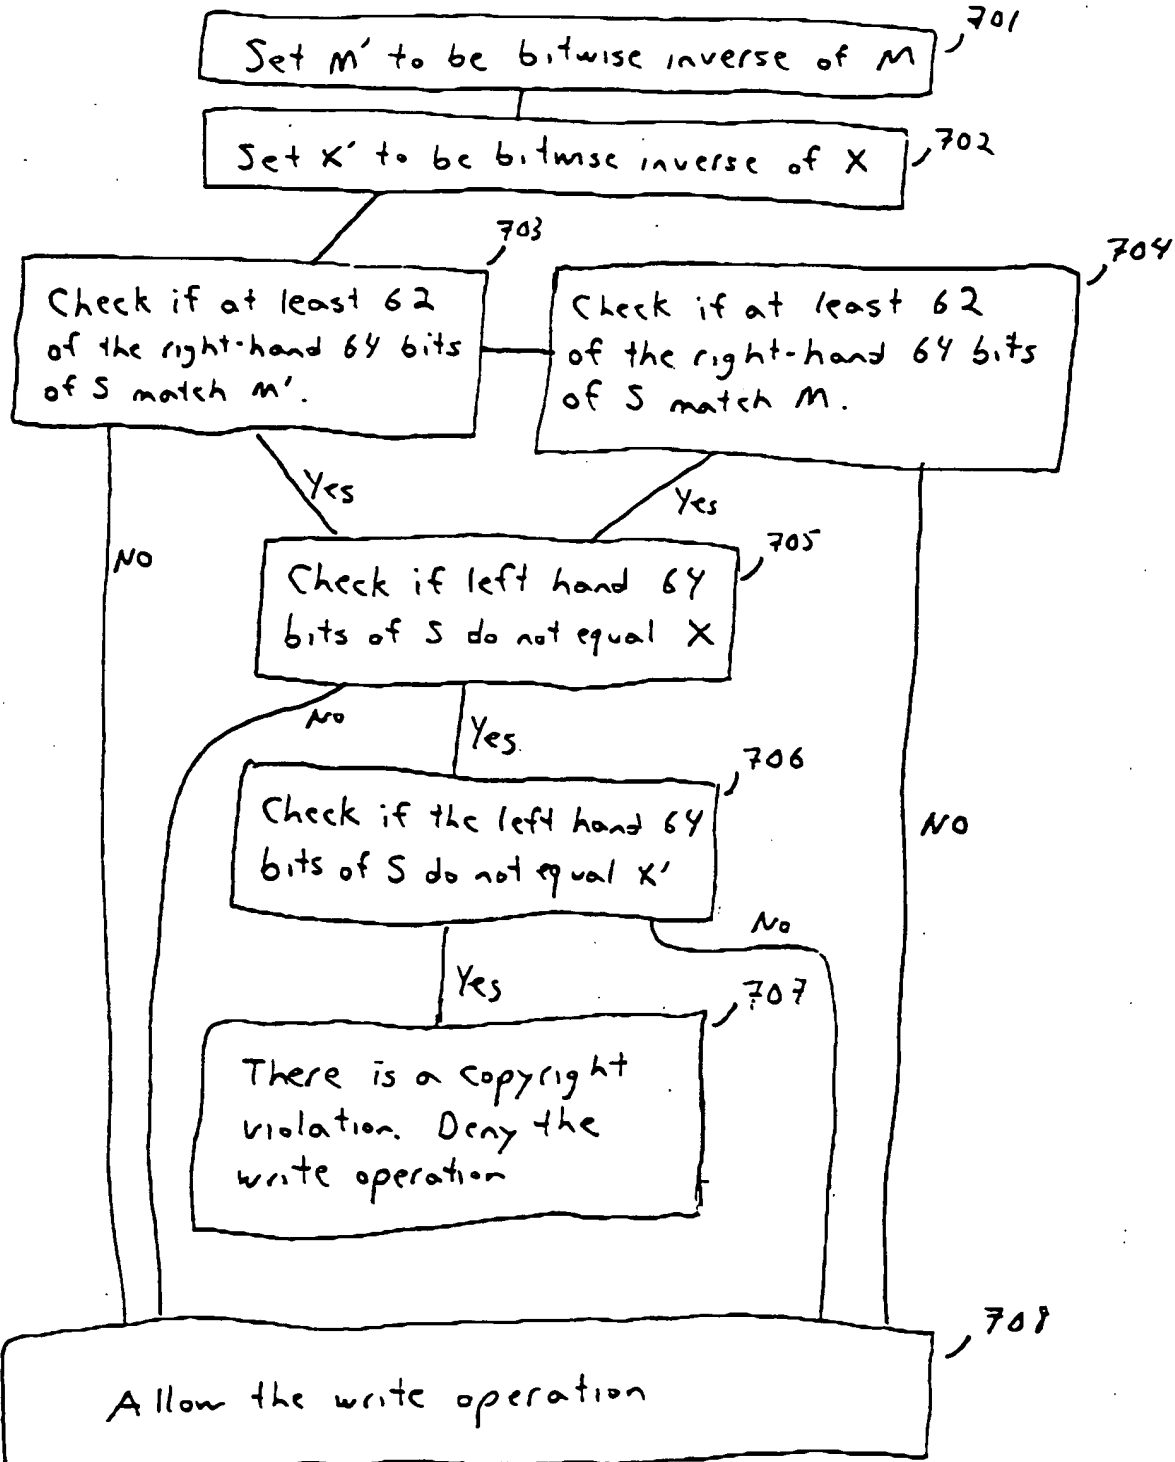 701
Set M' to be bitwise inverse of M
702
Set X' to be bitwise inverse of X
703
Check if at least 62
of the right-hand 64 bits
of S match M'.
704
Check if at least 62
of the right-hand 64 bits
of S match M.
Yes
Yes
NO
705
Check if left hand 64
bits of S do not equal X
No
Yes
706
Check if the left hand 64
bits of S do not equal X'
NO
No
Yes
707
There is a copyright
violation. Deny the
write operation
708
Allow the write operation